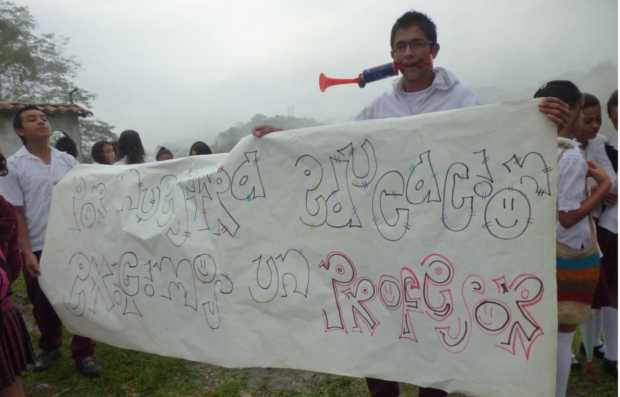 POR NUESTRA EDUCACIÓN
EXIGIMOS UN PROFESOR